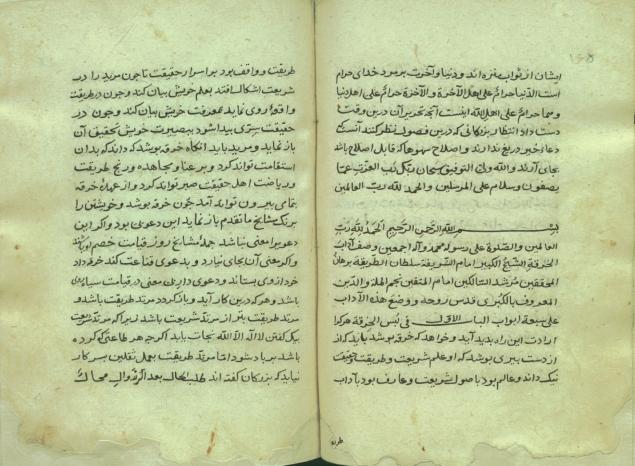 ایشان از ثواب منزه اند و دنیا و آخرت بر مرد خدای حرام
است الدنیا حرام علی اهل الآخرة و الآخرة حرام علی اهل دنیا
و هما حرام علی اهل الله اینست آنچه تحریر آن درین وقت
دست داد انتظار بزرگانی که درین فصول نظر کنند آنست که
دعاء خیر دریغ ندارند و اصلاح سهوها که قابل اصلاح باشد
بجای آرند والله ولی التوفیق سبحان ربک رب العزت عما
یصفون و سلام علی المرسلین و الحمد لله رب العالمین
بسم الله الرحمن الرحیم الحمد لله رب
العالمین و الصلوة علی رسوله محمد و آله اجمعین وصف آداب
الخرقة الشیخ الکبیر امام الشریفة سلطان الطریقة برهان
المحققین مرشد السالکین امام المتقین نجم الملة و الدین
المعروف بالکبری قدس روحه و وضع هذه الآداب
علی سبعة ابواب الباب الاول فی لبس الخرقة هر که را
ارادت این راه پدید آید و خواهد که خرقه پوشد باید که از
از دست پیری پوشد که او علم شریعت و طریقت و حقیقت
نیک داند و عالم بود باصول شریعت و عارف بود بآداب
طریقت و واقف بود بر اسرار حقیقت تا چون مرید را در
شریعت اشکال افتد بعلم خویش بیان کند و چون در طریقت
واقعه روی نماید بمعرفت خویش بیان کند و چون در
حقیقت سری پیدا شود ببصیرت خویش تحقیق آن
باز نماید و مرید باید آنکاه خرقه پوشد که داند که بدان
استقامت تواند کرد و بر عنا و مجاهده و رنج طریقت
و ریاضت اهل حقیقت صبر تواند کرد و از عهده خرقه
بتمامی بیرون تواند آمد چون خرقه پوشد و خویشتن را
برنک مشایخ ما تقدم باز نماید این دعوی بود و اکر این
دعوی را معنی نباشد جمله مشایخ روز قیامت خصم او باشند
و اکر معنی آن بجای نیارد و بدعوی قناعت کند خرقه داد
خرد از وی بستاند و دعوی دار بی معنی در قیامت سیاه روی
باشد و هر که درین کار آید و باز کردد مرتد طریقت باشد و
مرتد طریقت بتر از مرتد شریعت باشد زیرا که مرتد شریعت
بیک کفتن لا اله الا الله نجات یابد اکر چه هر طاعتی که کرده
باشد بر باد شود اما مرتد طریقت بعمل ثقلین بسر کار
نیاید که بزرکان کفته اند طلب الحال بعد الزوال محال
طریقت